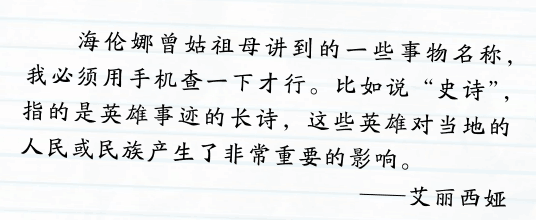 海伦娜曾姑祖母讲到的一些事物名称，
我必须用手机查一下才行。比如说“史诗”，
指的是英雄事迹的长诗，这些英雄对当地的
人民或民族产生了非常重要的影响。
——艾丽西娅